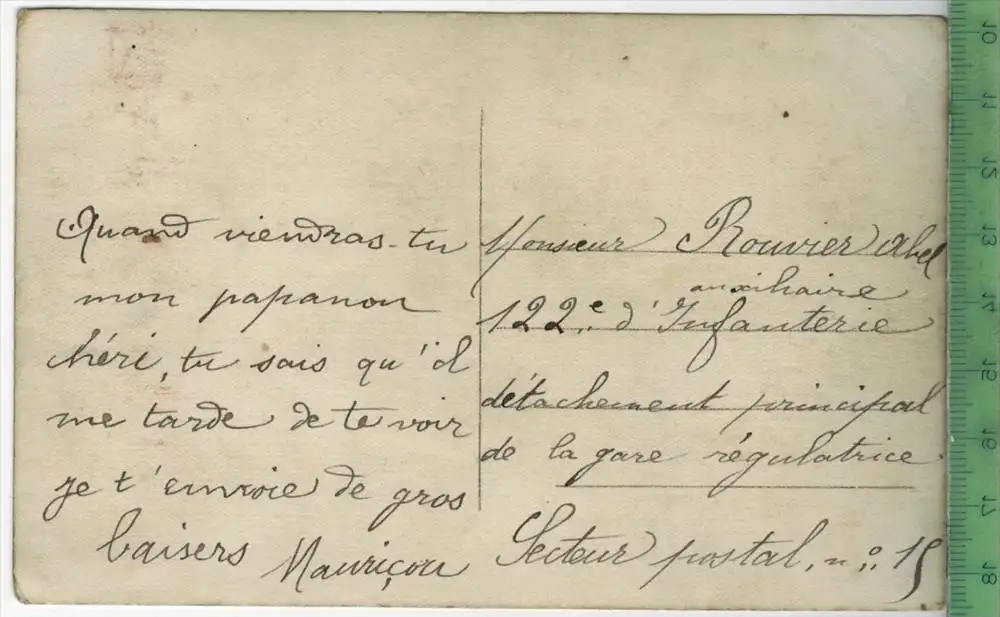 Quand viendras-tu
mon papanou
chéri, tu sais qu'il
me tarde de te voir
je t'envoie de gros
baisers Mauriçou
Monsieur Rouvier Abel
auxiliaire
122e d'Infanterie
détachement principal
de la gare régulatrice
Secteur postal, n° 15
10
11
12
13
14
15
16
17
18